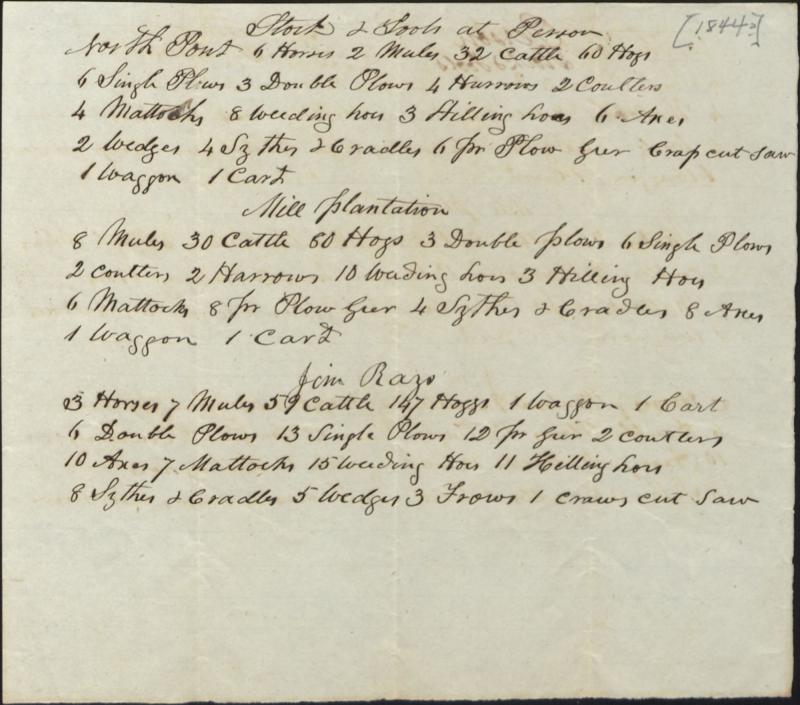 Stock & Tools at Person
[1844?]
North Pont 6 Horses 2 Mules 32 Cattle 60 Hogs
6 Single Plows 3 Double Plows 4 Harrows 2 Coulters
4 Mattocks 8 Weeding hoes 3 Hilling hoes 6 Axes
2 Wedges 4 Sythes & Cradles 6 pr Plow Geer Crap cut Saw
1 Waggon 1 Cart
Mill plantation
8 Mules 30 Cattle 60 Hogs 3 Double plows 6 Single Plows
2 coulters 2 Harrows 10 Weeding hoes 3 Hilling Hoes
6 Mattocks 8 pr Plow Geer 4 Sythes & Cradles 8 Axes
1 Waggon 1 Cart
Jim Rays
3 Horses 7 Mules 59 Cattle 147 Hoggs 1 Waggon 1 Cart
6 Double Plows 13 Single Plows 12 pr Geer 2 coulters
10 Axes 7 Mattocks 15 Weeding Hoes 11 Hilling hoes
8 Sythes & Cradles 5 Wedges 3 Frows 1 craws cut Saw